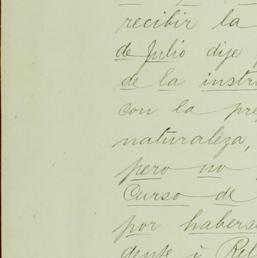 recibir la
de Julio dije
de la instr
con la pre
naturaleza,
pero no
Curso de
por habers
dente á Rel